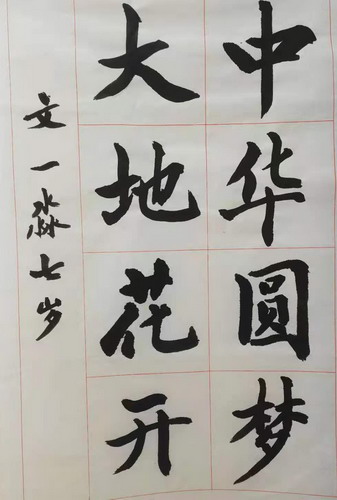 中华圆梦
大地花开
文一淼七岁